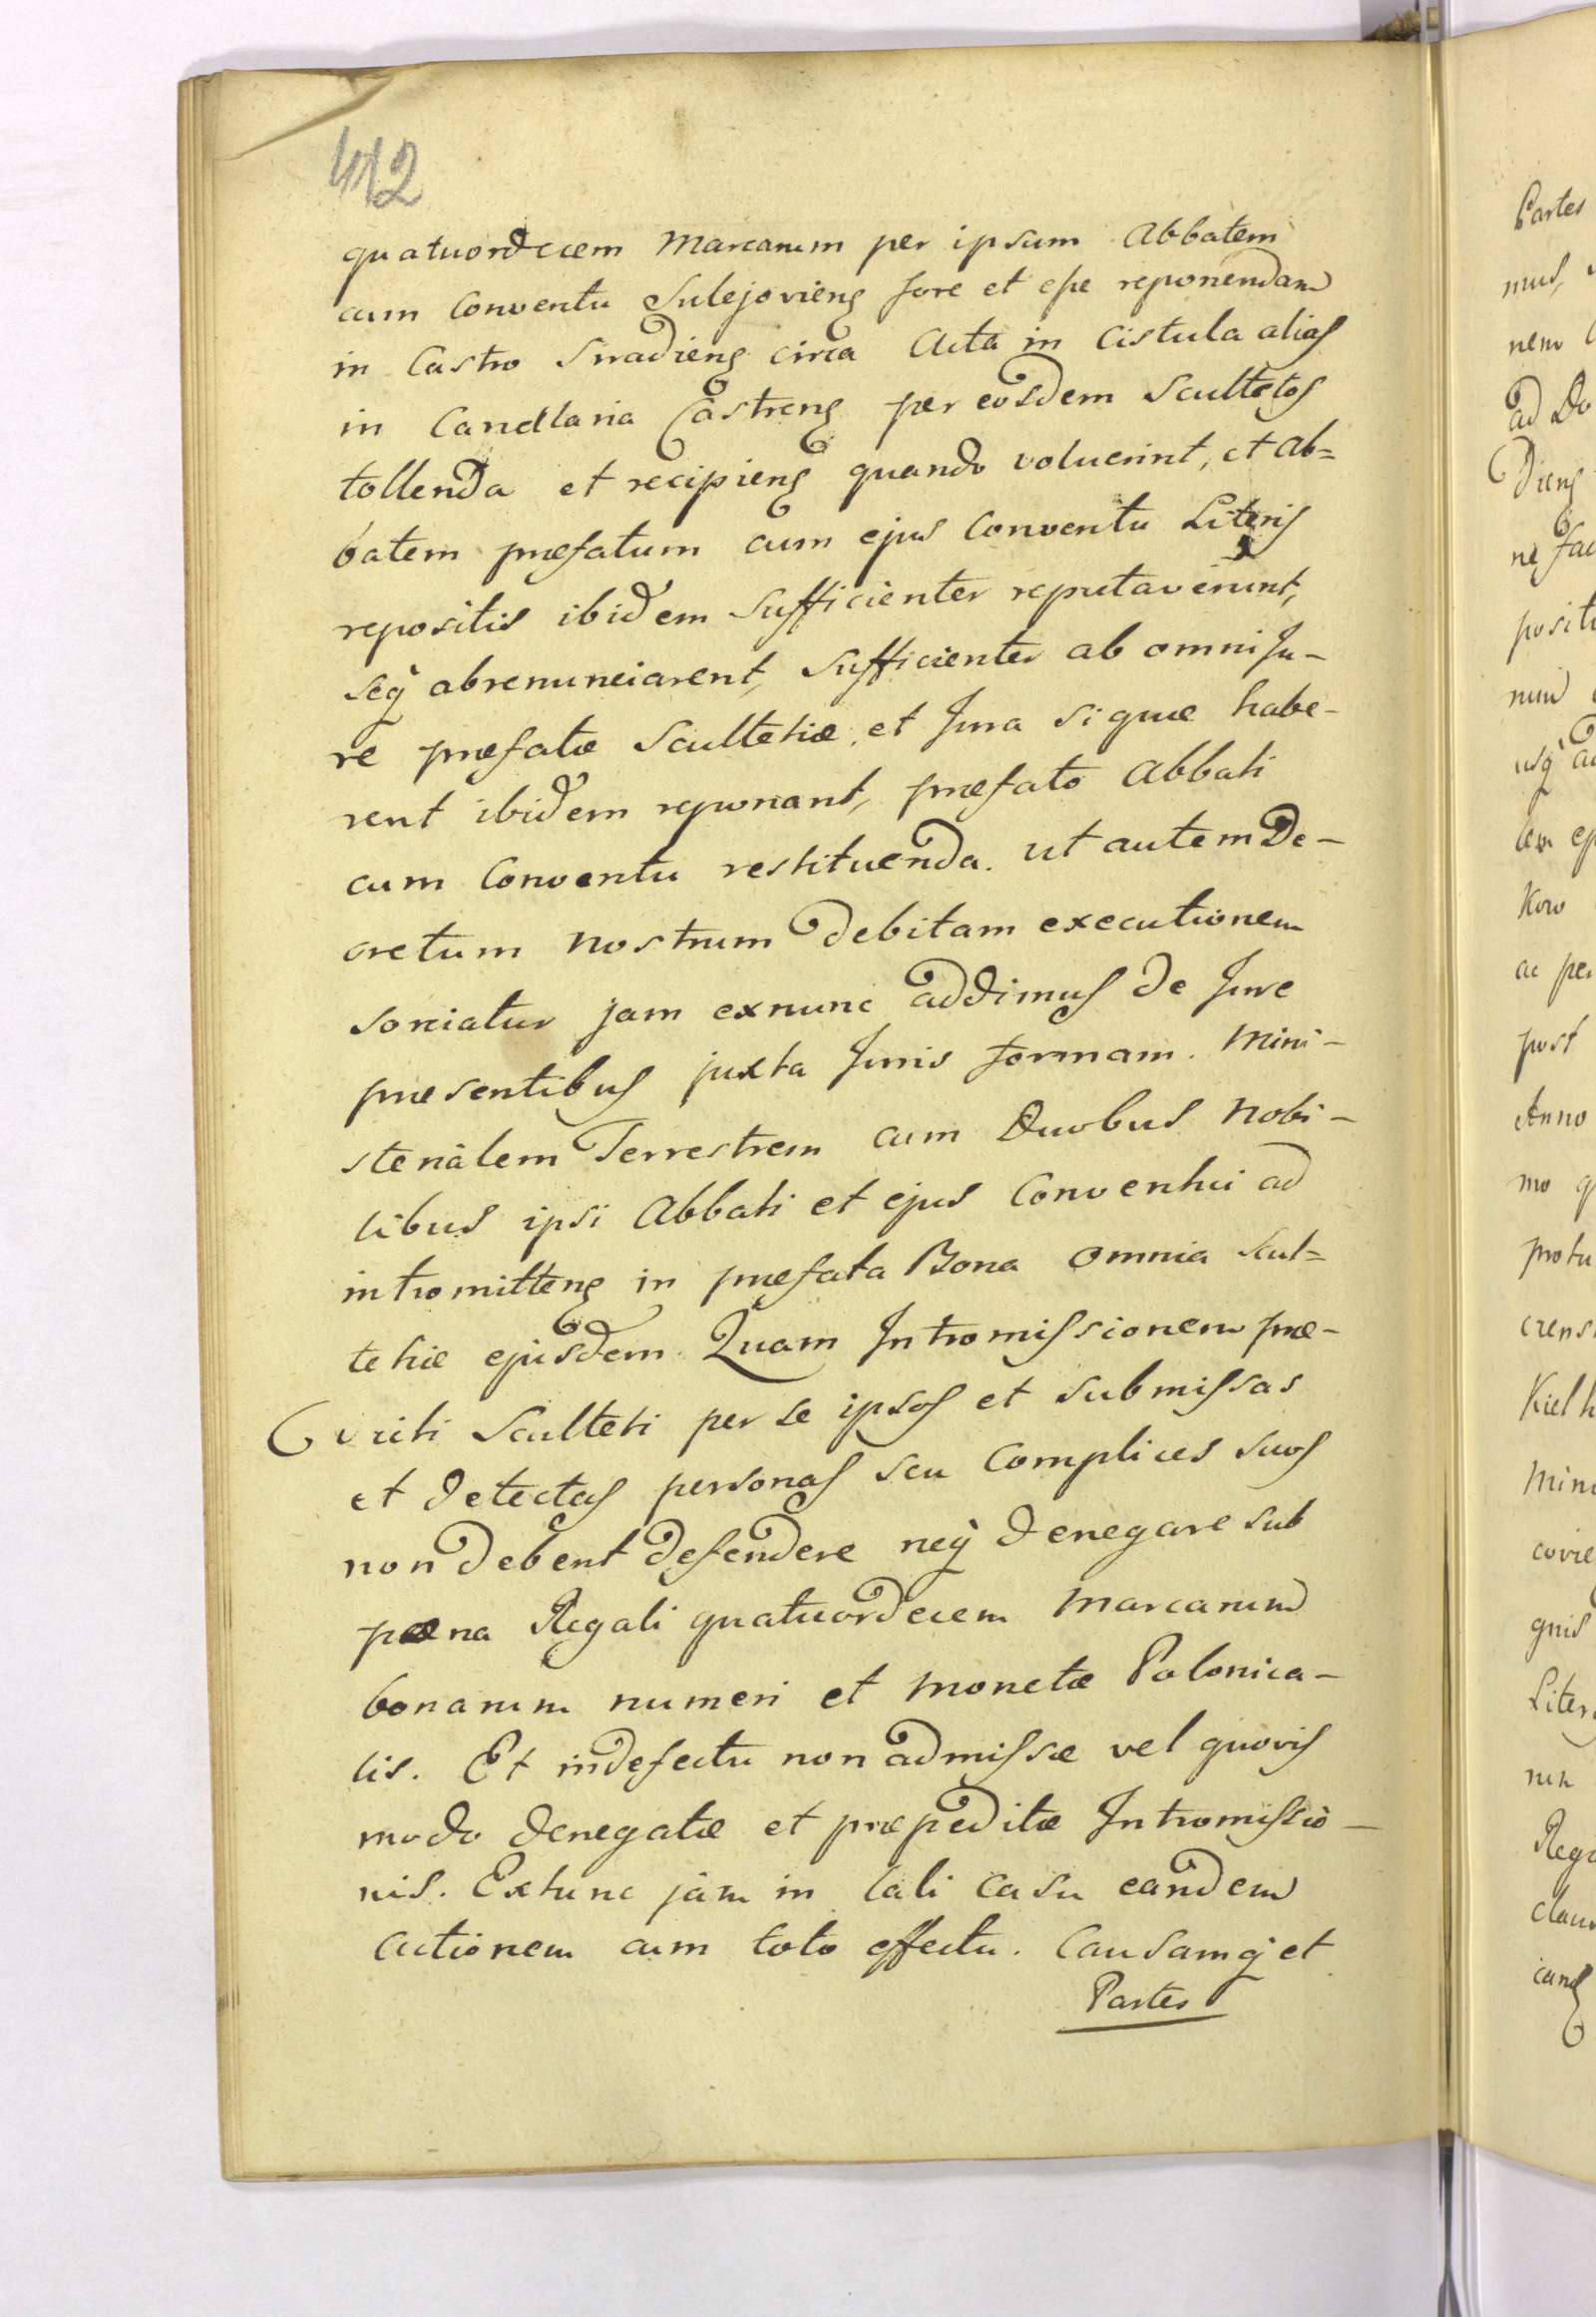 412
quatuordecem Marcarum per ipsum Abbatem
cum Conventu Sulejoviens fore et esse reponendam
in Castro Siradiens circa Acta in Cistula alias
in Cancellaria Castrens per eosdem Scultetos
tollenda et recipiens quando voluerint, et Ab=
batem præfatum cum ejus Conventu Literis
repositis ibidem sufficienter reputaverunt,
seq abrenunciarent, sufficienter ab omni Ju-
re præfatæ Scultetiæ, et Jura si quæ habe-
rent ibidem reponant, præfato Abbati
cum Conventu restituenda. ut autem De-
cretum Nostrum debitam executionem
sorciatur jam exnunc addimus de Jure
præsentibus juxta Juris formam. Mini-
sterialem Terrestrem cum Duobus Nobi-
libus ipsi Abbati et ejus Conventui ad
intromittens in præfata Bona omnia Scul=
tetiæ ejusdem. Quam Intromissionem præ-
viciti Sculteti per se ipsos et submissas
et detectas personas seu Complices suos
non debent defendere neq denegare sub
pæna Regali quatuordecem Marcarum
bonarum numeri et Monetæ Polonica-
lis. Et indefectu non admissæ vel quovis
modo denegatæ et præpeditæ Intromissio-
nis. Extunc jam in tali casu eandem
actionem cum toto effectu. Causamq et
Partes
Partes
mus,
nem
ad Do
diens
posit
num
usq
Kow
ac per
post
Anno
mo
crens
Kiel
Mini
covie
gnis
Liter
Rega